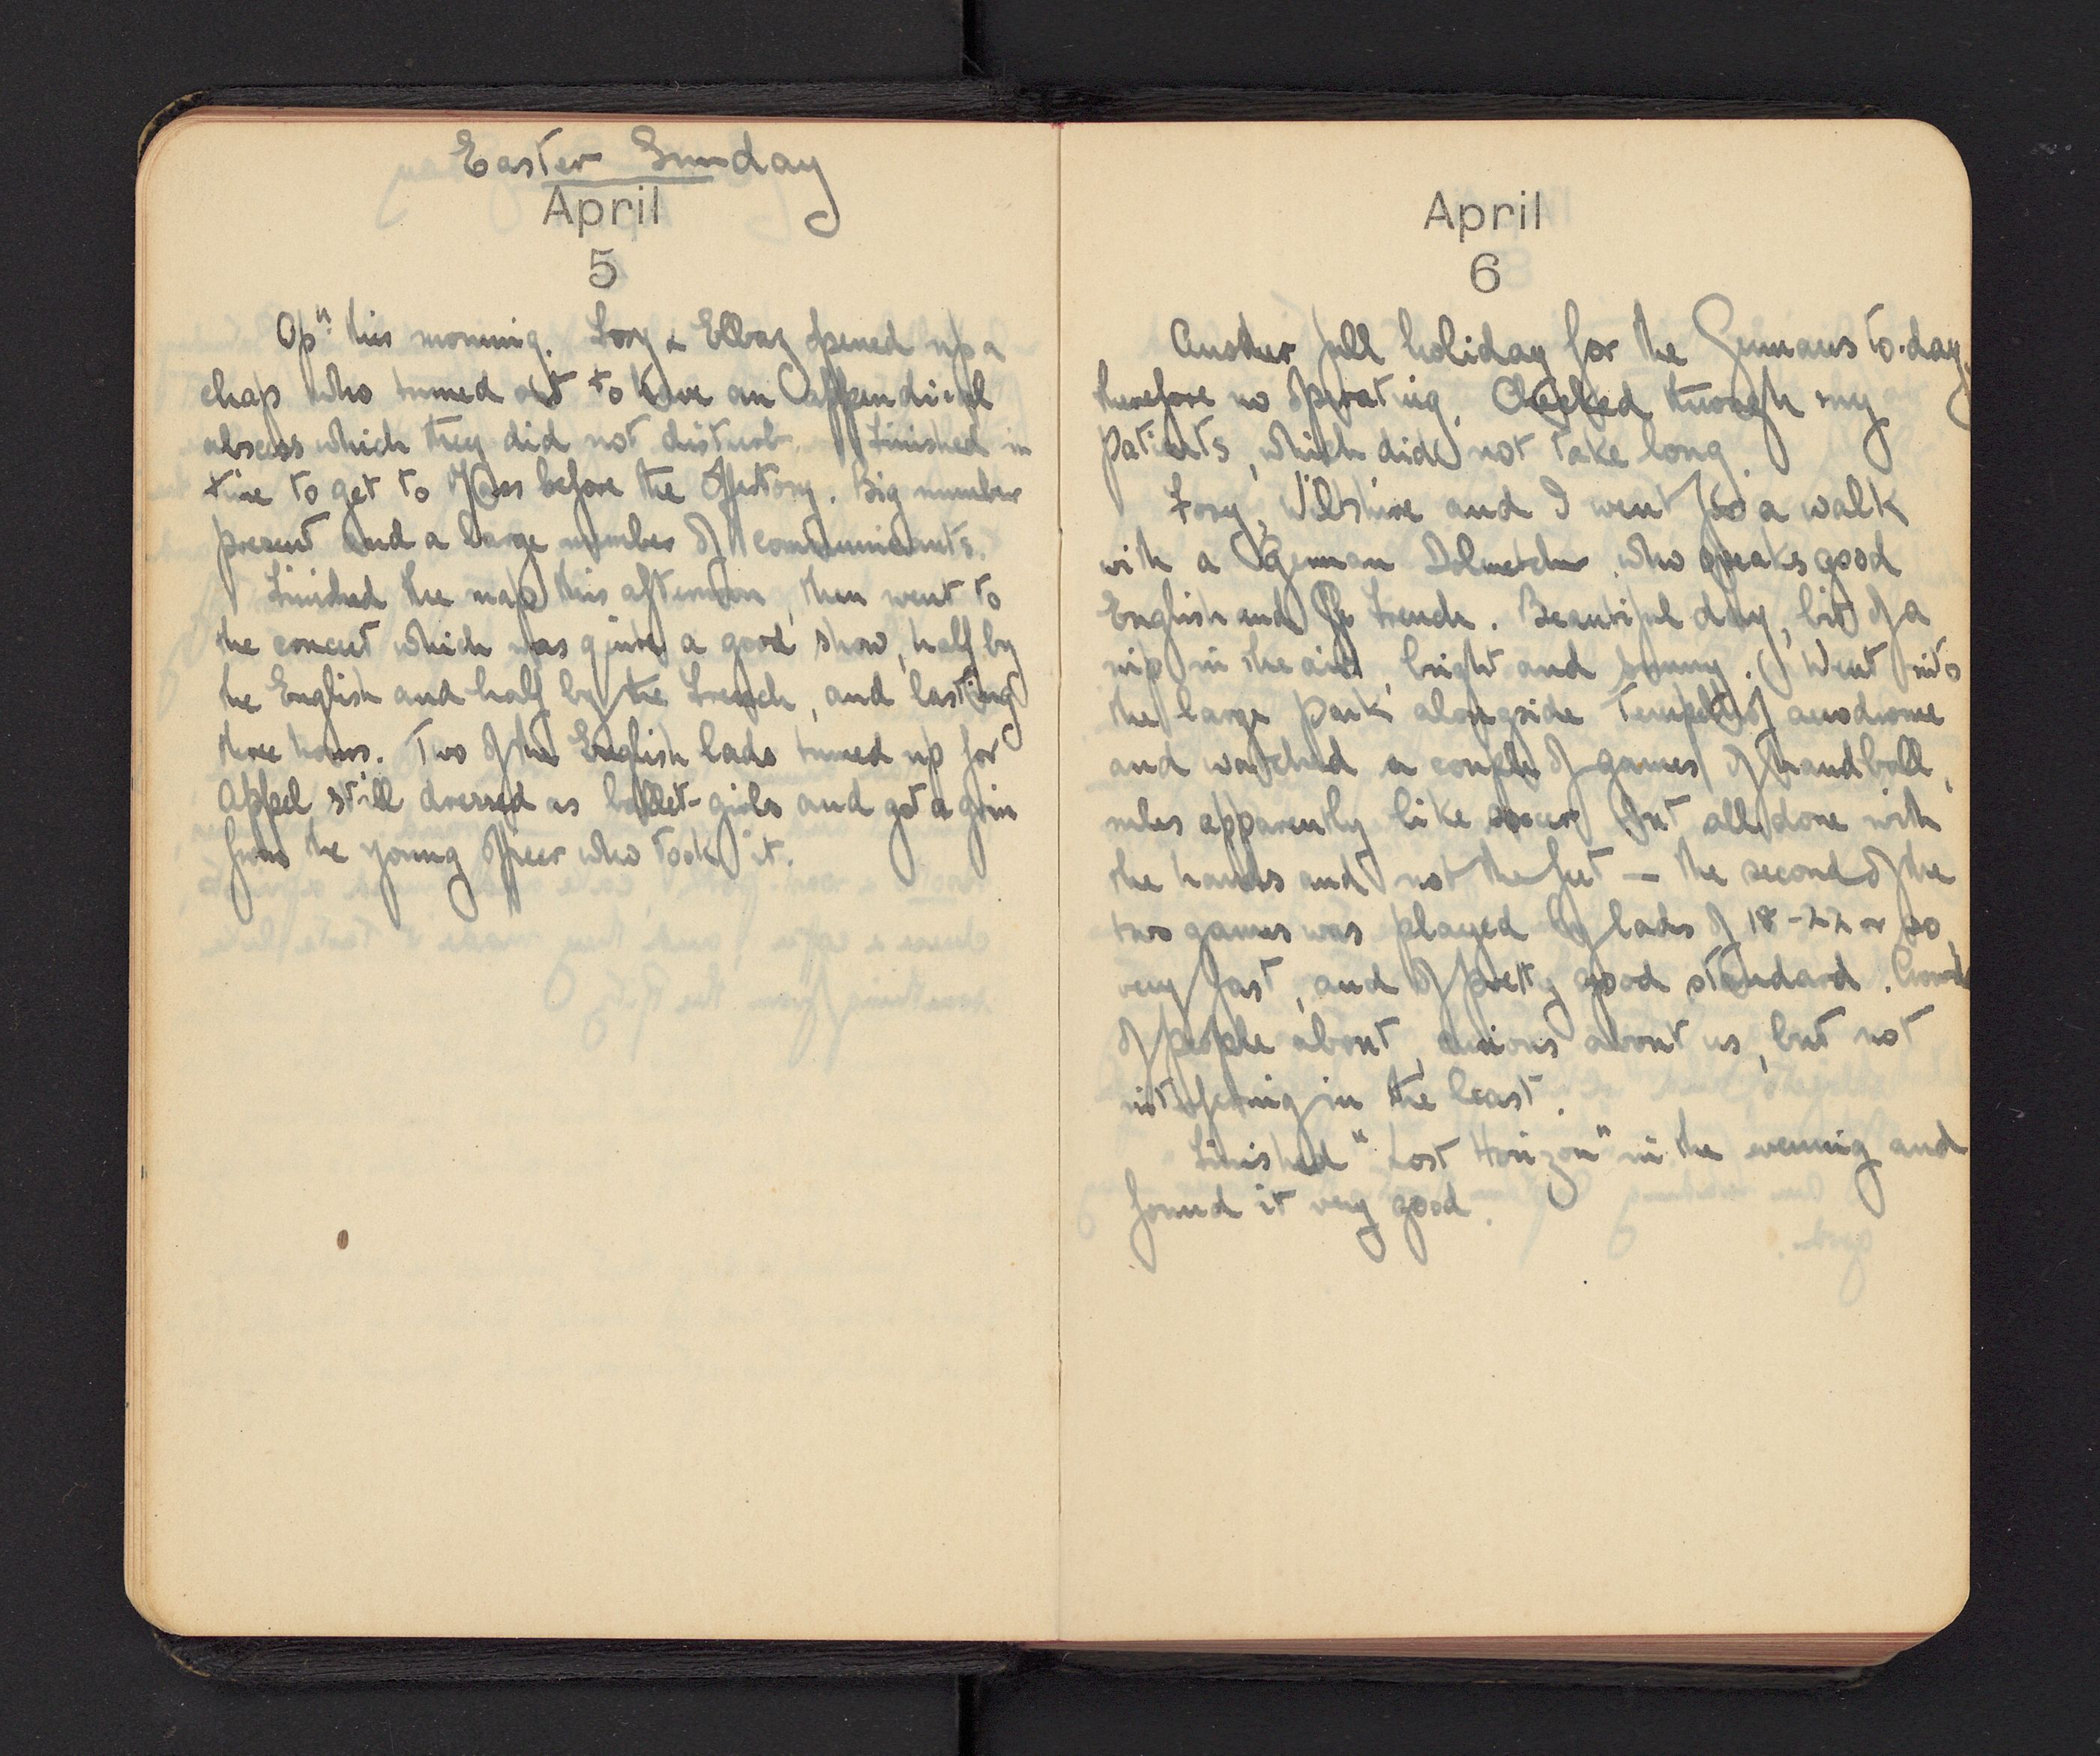 Easter Sunday
April
5
Opn. this morning. Fory & Elbaz opened up a
chap who turned out to have an appendical
abscess which they did not disturb. Finished in
time to get to Mass before the Offertory. Big number
present and a large number of communicants.
Finished the map this afternoon, then went to
the concert which was quite a good show, half by
the English and half by the French, and lasting
three hours. Two of the English lads turned up for
Appel still dressed as ballet-girls and got a grin
from the young officer who took it.
April
6
Another full holiday for the Germans to-day,
therefore no operating. Checked through my
patients, which did not take long.
Fory, Wilshire and I went for a walk
with a German Dolmetcher who speaks good
English and French. Beautiful day, bit of a
nip in the air, bright and sunny. Went into
the large park alongside Tempelhof aerodrome
and watched a couple of games of handball,
rules apparently like soccer but all done with
the hands and not the feet — the second of the
two games was played by lads of 18-22 or so,
very fast, and of pretty good standard. Crowds
of people about, curious about us, but not
interfering in the least.
Finished "Lost Horizon" in the evening and
found it very good.